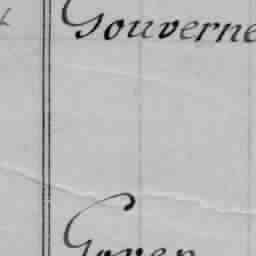 Gouverne
Gaven